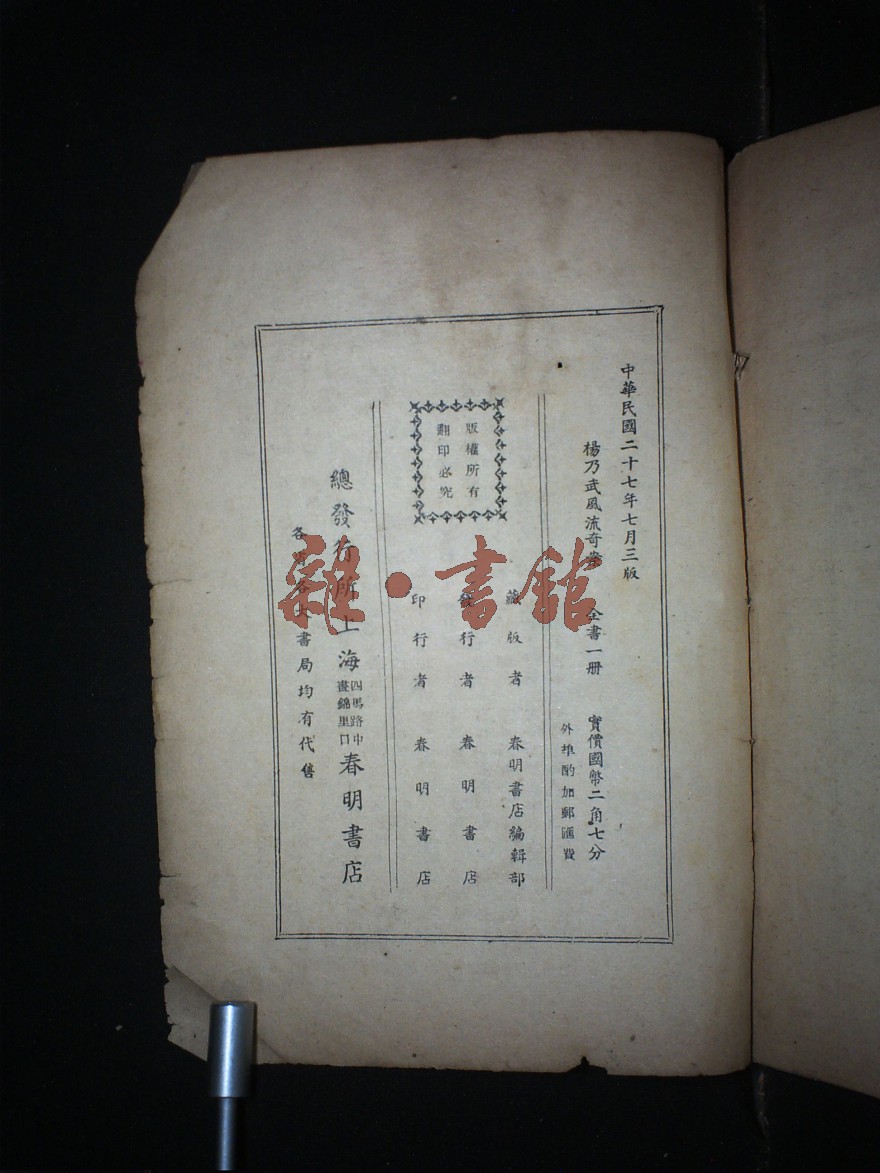 中華民國二十七年七月三版
楊乃武風流奇案 全書一冊 實價國幣二角七分
外埠酌加郵匯費
藏版者 春明書店編輯部
發行者 春明書店
印行者 春明書店
版權所有
翻印必究
總發行所上海
四馬路中
晝錦里口
春明書店
各省各大書局均有代售
雜·書館